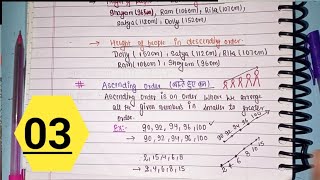 Shayam (96cm), Ram (106cm), Rita (107cm)
Satya (112cm), Dolly (152cm)
→ Height of people in descending order.
Dolly (152cm), Satya (112cm), Rita (107cm)
Ram (106cm), Shayam (96cm)
# Ascending Order (बढ़ते हुए क्रम)
Ascending order is an order where we arrange
all the given numbers in smaller to greater
order.
Ex:- 90, 92, 94, 96, 100
→ 90, 92, 94, 96, 100
90 92 94 96 100
2, 15, 4, 6, 8
→ 2, 4, 6, 8, 15
2 4 6 8 10 15
03